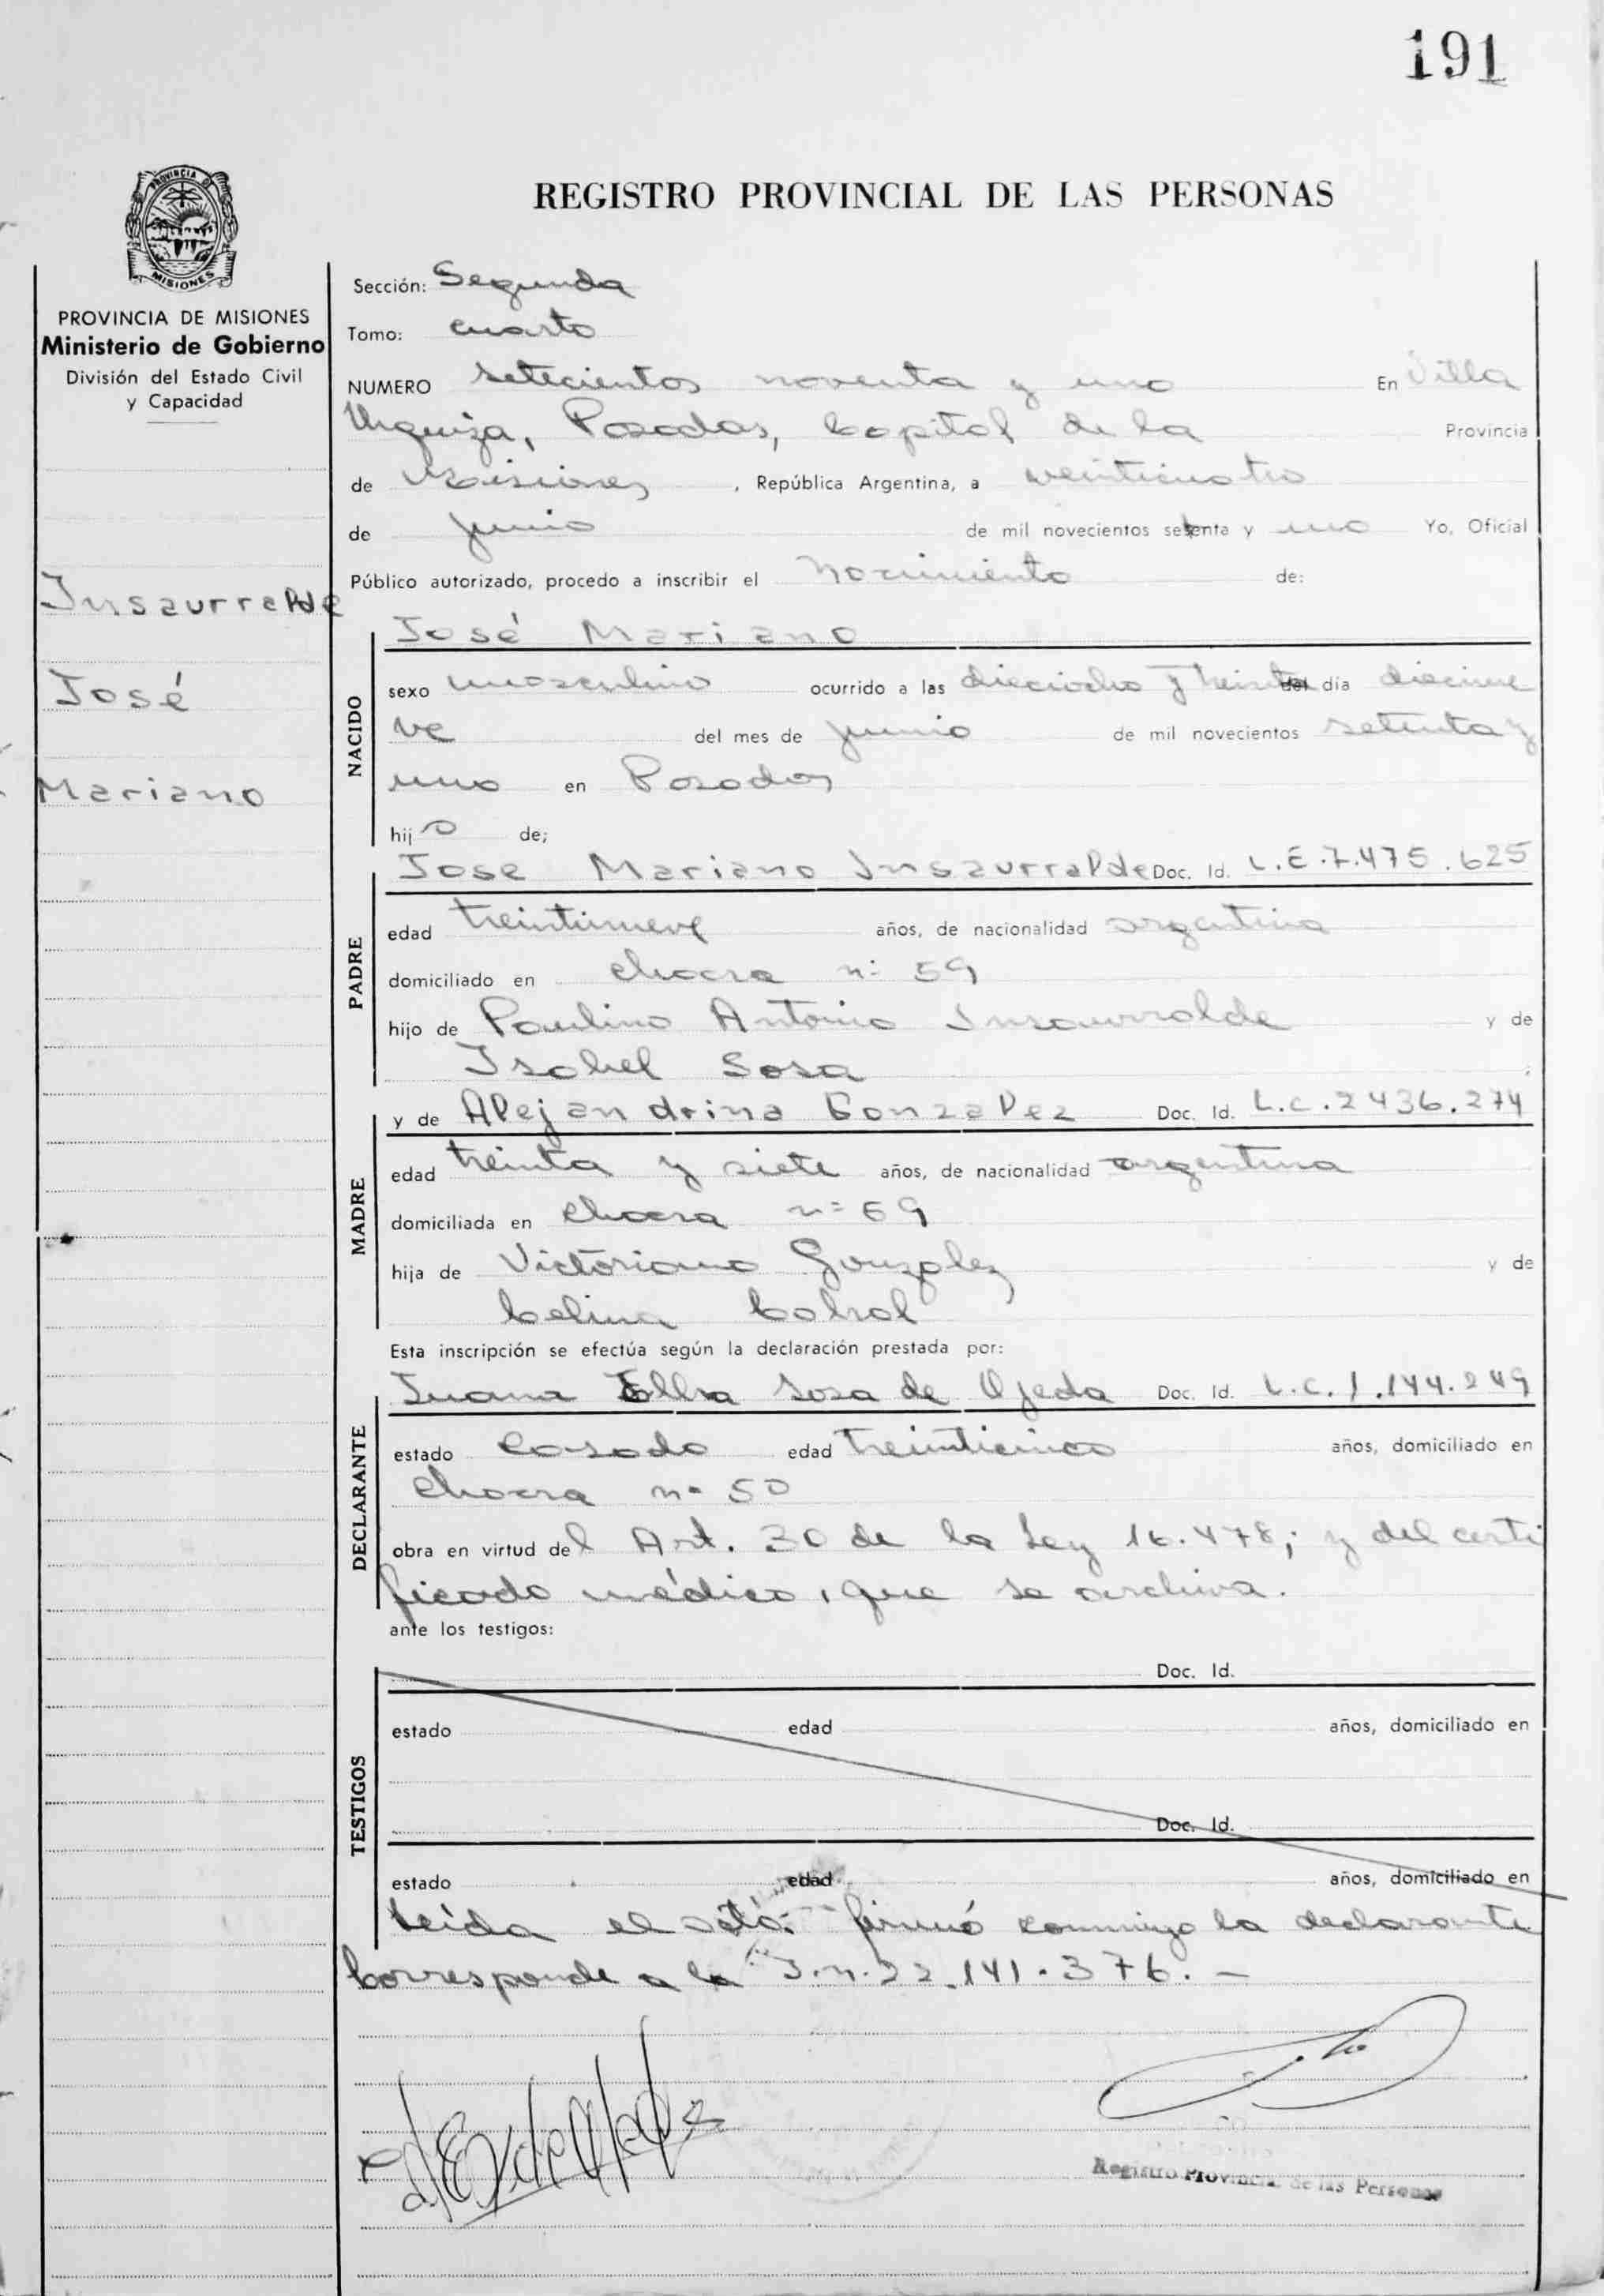 191
PROVINCIA
MISIONES
REGISTRO PROVINCIAL DE LAS PERSONAS
PROVINCIA DE MISIONES
Ministerio de Gobierno
División del Estado Civil
y Capacidad
Insaurralde
José
Mariano
Sección: Segunda
Tomo: cuarto
NUMERO setecientos noventa y uno En Villa
Urquiza, Posadas, Capital de la Provincia
de Misiones, República Argentina, a veinticuatro
de junio de mil novecientos setenta y uno Yo, Oficial
Público autorizado, procedo a inscribir el nacimiento de:
José Mariano
NACIDO
sexo masculino ocurrido a las dieciocho y treinta del día diecinue
ve del mes de junio de mil novecientos setenta y
uno en Posadas
hijo de;
Jose Mariano Insaurralde Doc. Id. L.E.7.475.625
PADRE
edad treintinueve años, de nacionalidad argentina
domiciliado en chacra nº 59
hijo de Paulino Antonio Insaurralde y de
Isabel Sosa
y de Alejandrina Gonzalez Doc. Id. L.C.2436.274
MADRE
edad treinta y siete años, de nacionalidad argentina
domiciliada en chacra nº 59
hija de Victoriano Gonzalez y de
Celina Cabral
Esta inscripción se efectúa según la declaración prestada por:
Juana Elba Sosa de Ojeda Doc. Id. L.C.1.144.249
DECLARANTE
estado casada edad treinticinco años, domiciliado en
chacra nº 50
obra en virtud del Art. 30 de la Ley 16.478; y del certi
ficado médico, que se archiva.
ante los testigos:
Doc. Id.
TESTIGOS
estado edad años, domiciliado en
Doc. Id.
estado edad años, domiciliado en
Leída el acta: firmó conmigo la declarante
Corresponde a la I.n.22.141.376.-
Registro Provincial de las Personas